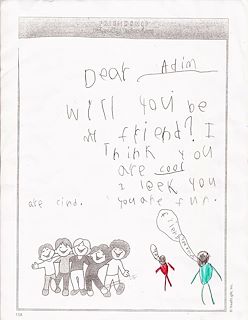 FRIENDSHIP
Dear Adim
will you be
my friend? I
Think you
are cool
I leek you
are kind. you are fun.